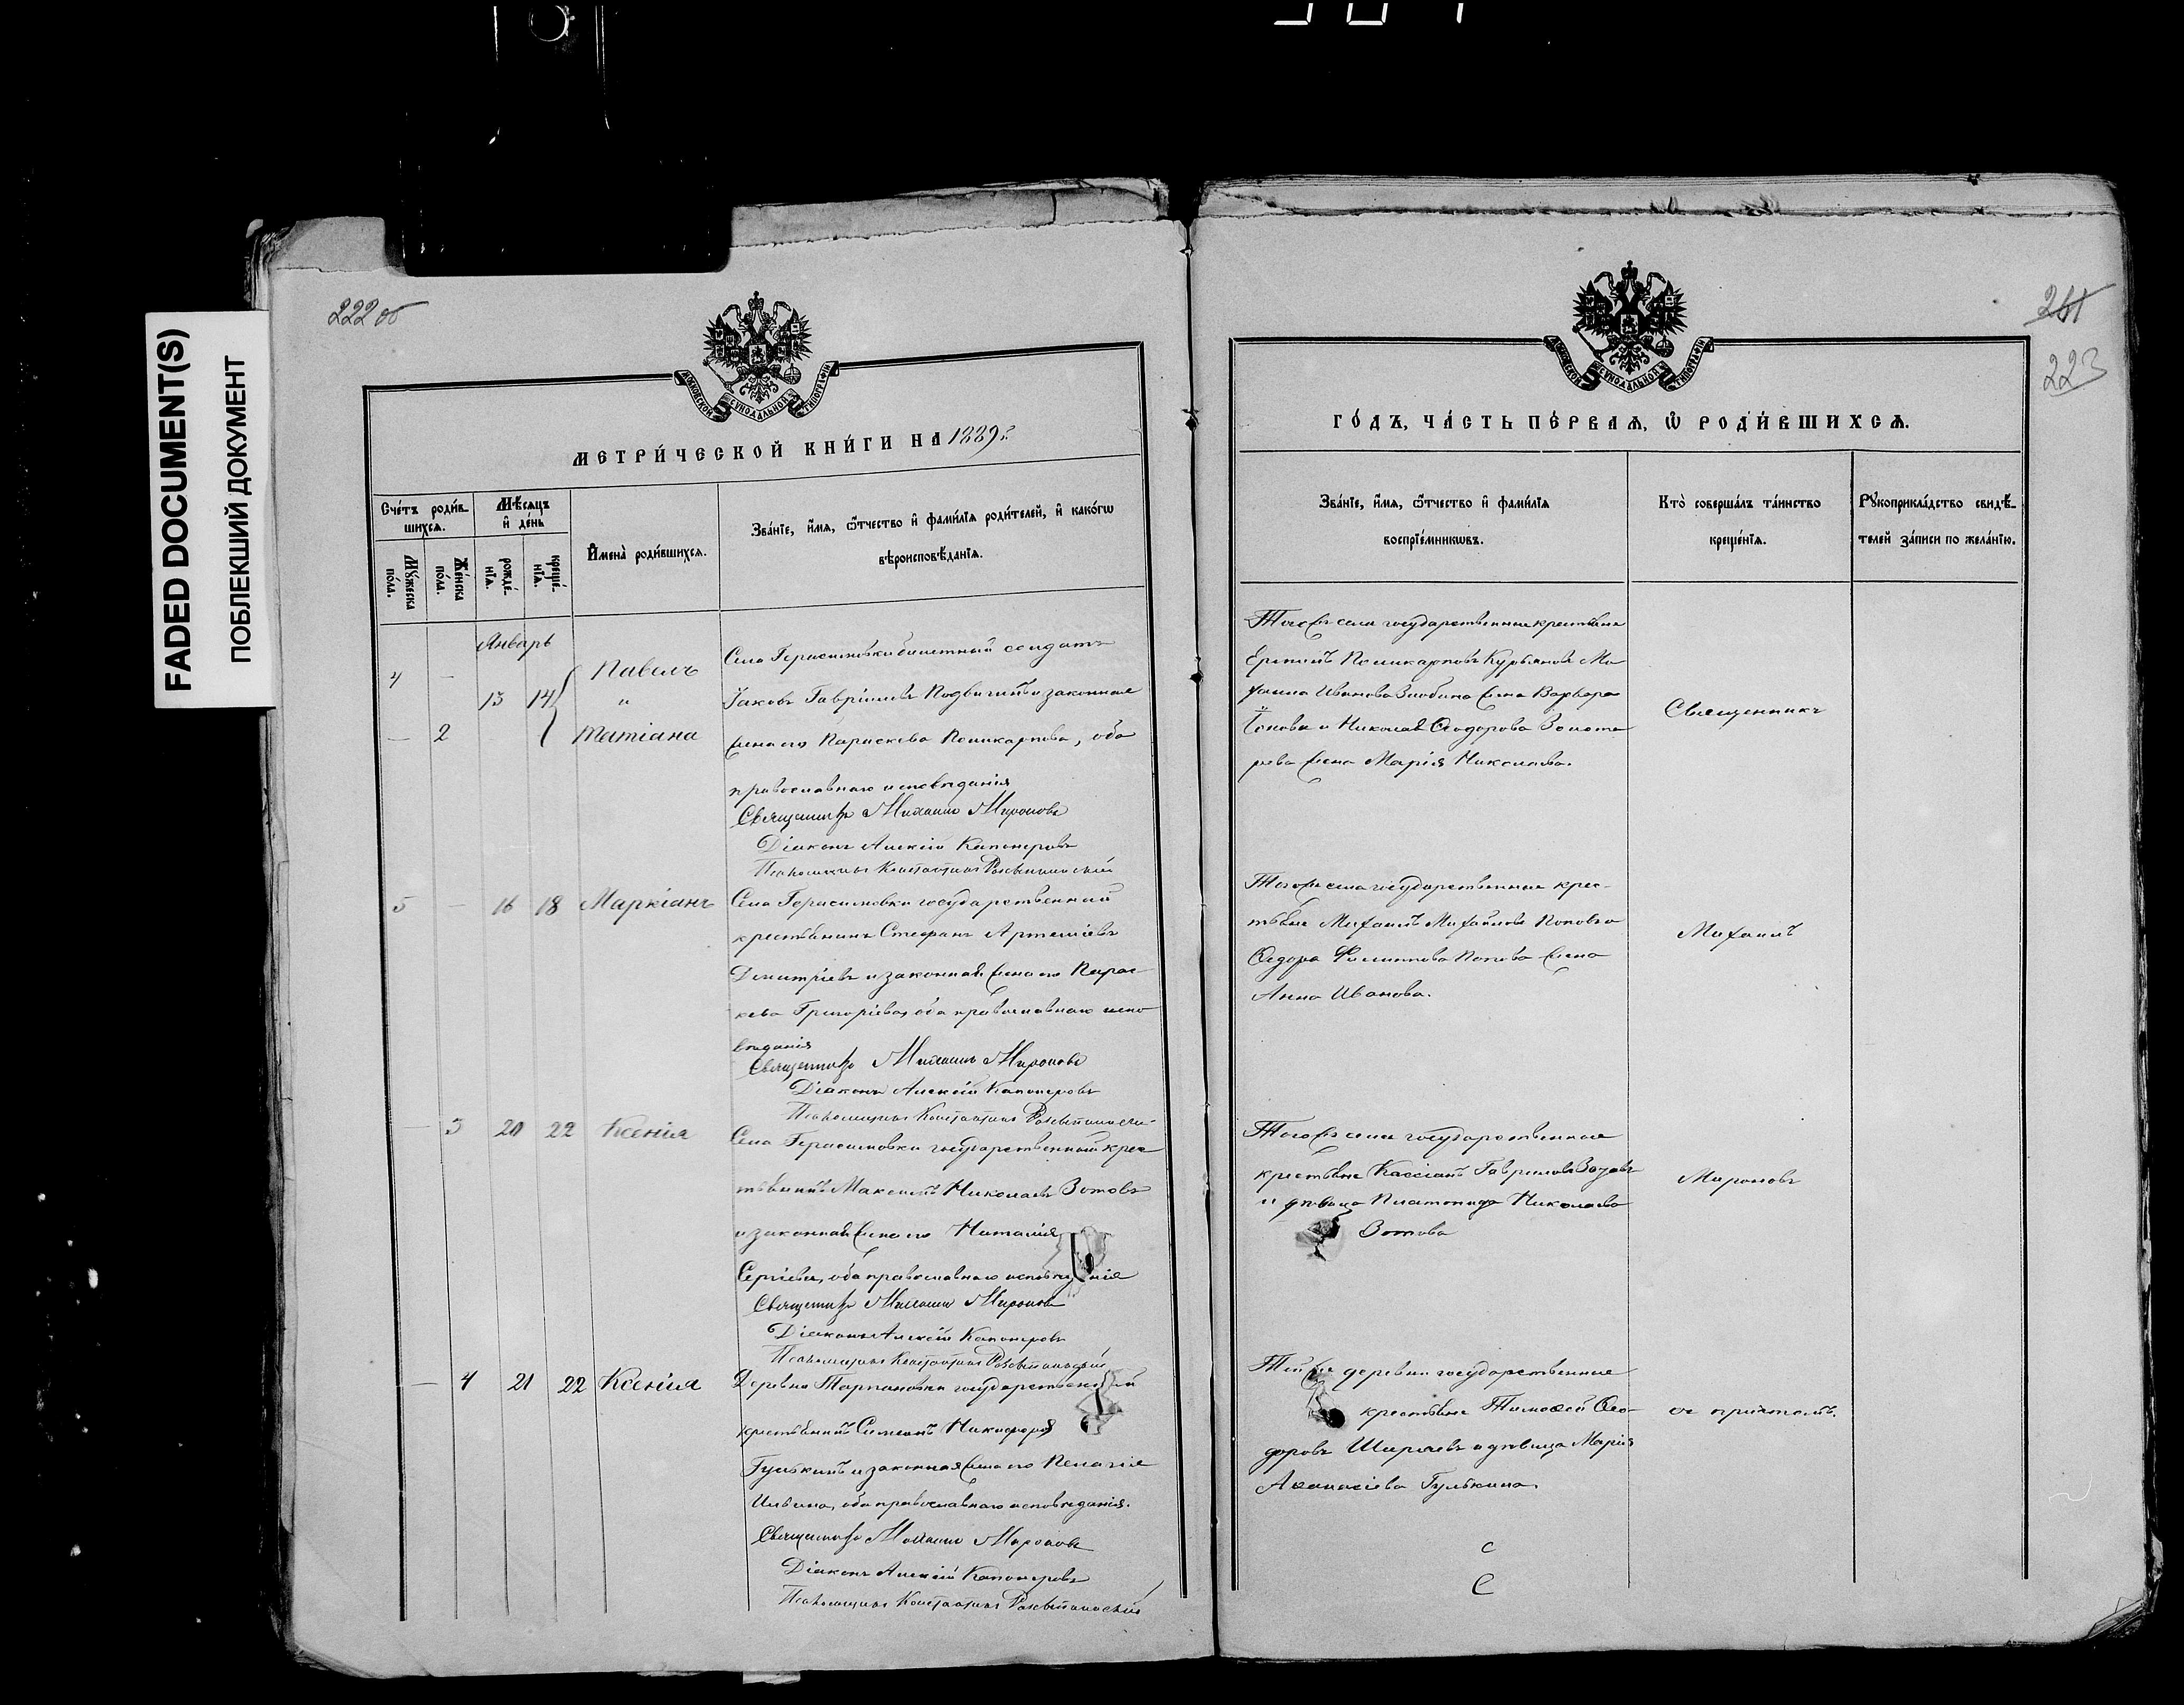 FADED DOCUMENT(S)
ПОБЛЕКШИЙ ДОКУМЕНТ
222 об
МОСКОВСКОЙ СѴНОДАЛЬНОЙ ТИПОГРАФІИ
МЕТРИ́ЧЕСКОЙ КНИ́ГИ НА 1889 г.
Сче́тъ роди́в-
шихсѧ.
Мѣ́сѧцъ
и҆ де́нь
Мꙋ́жеска
по́ла.
Же́нска
по́ла.
рожде́-
нїѧ.
креще́-
нїѧ.
И҆мена̀ роди́вшихсѧ.
Зва́нїе, и҆́мѧ, ѻ҆́тчество и҆ фами́лїѧ роди́телей, и҆ како́гѡ
вѣроисповѣ́данїѧ.
Январь
4 — 13 14 Павелъ
"
— 2 Татіана
Села Герасимовки билетный солдатъ
Іаковъ Гавріиловъ Подвигинъ и законная
жена его Параскева Поликарпова, оба
православнаго исповѣданія
Священникъ Михаилъ Мироновъ
Діаконъ Алексій Капонеровъ
Псаломщикъ Константинъ
5 — 16 18 Маркіанъ
Села Герасимовки государственный
крестьянинъ Стефанъ Артеміевъ
Димитріевъ и законная жена его Парас-
кева Григоріева, оба православнаго испо-
вѣданія
Священникъ Михаилъ Мироновъ
Діаконъ Алексій Капонеровъ
Псаломщикъ Константинъ
— 3 20 22 Ксенія
Села Герасимовки государственный крес-
тьянинъ Максимъ Николаевъ Зотовъ
и законная жена его Наталія
Сергіева, оба православнаго исповѣданія
Священникъ Михаилъ Мироновъ
Діаконъ Алексій Капонеровъ
Псаломщикъ Константинъ
— 4 21 22 Ксенія
Деревни государственный
крестьянинъ Симеонъ Никифоровъ
Гулькинъ и законная жена его Пелагія
Ильина, оба православнаго исповѣданія.
Священникъ Михаилъ Мироновъ
Діаконъ Алексій Капонеровъ
Псаломщикъ Константинъ
223
МОСКОВСКОЙ СѴНОДАЛЬНОЙ ТИПОГРАФІИ
ГО́ДЪ, ЧА́СТЬ ПЕ́РВАѦ, Ѡ҆ РОДИ́ВШИХСѦ.
Зва́нїе, и҆́мѧ, ѻ҆́тчество и҆ фами́лїѧ
воспрїе́мникѡвъ.
Кто̀ соверша́лъ та́инство
креще́нїѧ.
Рꙋкоприкла́дство свидѣ́-
телей за́писи по жела́нїю.
Того же села государственные крестьяне
Поликарповъ Ми-
хаила Иванова Злобина жена Варвара
и Николая Ѳеодорова Золота-
рева жена Марія Николаева.
Священникъ
Того же села государственные крес-
тьяне Михаилъ Михайловъ Поповъ и
Ѳедора Филиппова Попова жена
Анна Иванова.
Михаилъ
Того же села государственные
крестьяне Кассіанъ Гавриловъ Зотовъ
и дѣвица Платонида Николаева
Зотова
Мироновъ
Той же деревни государственные
крестьяне Тимоѳей Ѳео-
доровъ Ширяевъ и дѣвица Марія
Аѳанасіева Гулькина.
съ причтомъ.